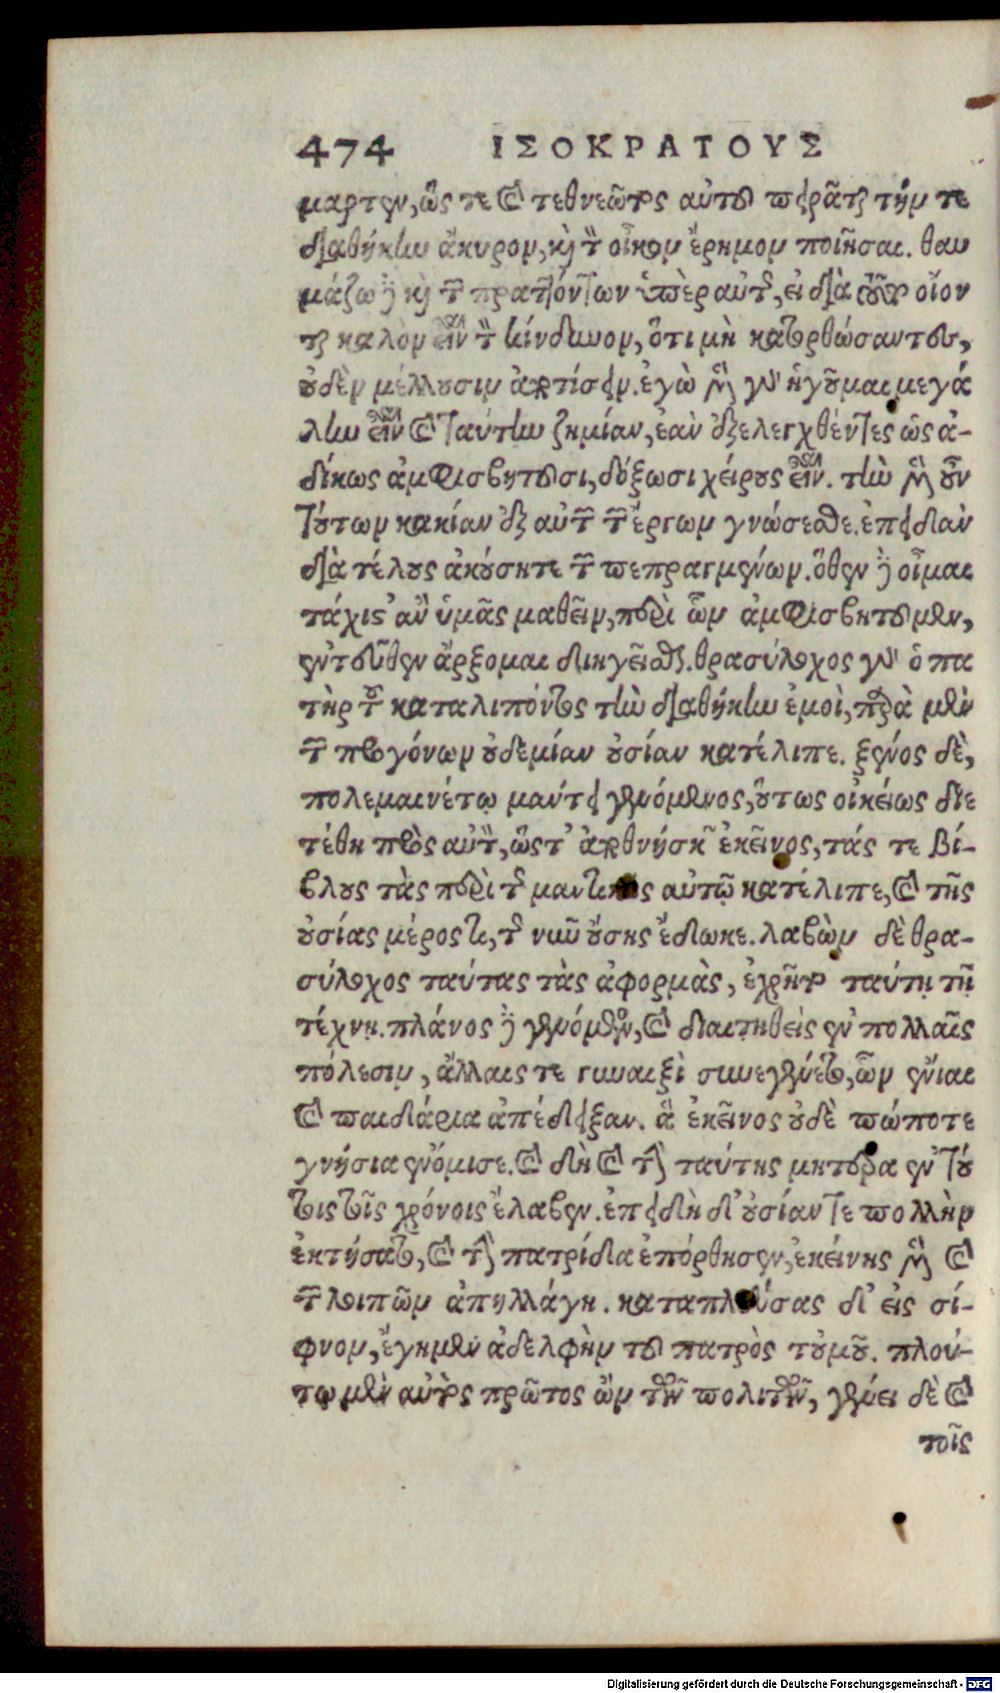 474 ΙΣΟΚΡΑΤΟΥΣ
μαρτεν, ὥς τε καὶ τεθνεῶτος αὐτοῦ πειρᾶται τήν τε
διαθήκην ἄκυρον, καὶ τὸν οἶκον ἔρημον ποιῆσαι. θαυ
μάζω δὲ καὶ τῶν πραττόντων ὑπὲρ αὐτῆς, εἰ διὰ τοῦτο οἴον
ται καλὸν εἶναι τὸν κίνδυνον, ὅτι μὴ κατορθώσαντες,
οὐδὲν μέλλουσιν ἀποτίσειν. ἐγὼ μὲν γὰρ ἡγοῦμαι μεγά
λην εἶναι καὶ ταύτην ζημίαν, ἐὰν ἐξελεγχθέντες ὡς ἀ-
δίκως ἀμφισβητοῦσι, δόξωσι χείρους εἶναι. τὴν μὲν οὖν
τούτων κακίαν ἐξ αὐτῶν τῶν ἔργων γνώσεσθε. ἐπειδὰν
διὰ τέλους ἀκούσητε τῶν πεπραγμένων. ὅθεν δὲ οἶμαι
τάχιστ' ἂν ὑμᾶς μαθεῖν, περὶ ὧν ἀμφισβητοῦμεν,
ἐντεῦθεν ἄρξομαι διηγεῖσθαι. θρασύλοχος γὰρ ὁ πα
τὴρ τοῦ καταλιπόντος τὴν διαθήκην ἐμοὶ, παρὰ μὲν
τῶν προγόνων οὐδεμίαν οὐσίαν κατέλιπε. ξένος δὲ,
πολεμαινέτῳ μαντει γενόμενος, οὕτως οἰκείως διε
τέθη πρὸς αὐτὸν, ὥστ' ἀποθνήσκων ἐκεῖνος, τάς τε βί-
βλους τὰς περὶ τῆς μαντικῆς αὐτῷ κατέλιπε, καὶ τῆς
οὐσίας μέρος τι, τῆς νῦν οὔσης ἔδωκε. λαβὼν δὲ θρα-
σύλοχος ταύτας τὰς ἀφορμὰς, ἐχρῆτο ταύτῃ τῇ
τέχνῃ. πλάνος δὲ γενόμενος, καὶ διαιτηθεὶς ἐν πολλαῖς
πόλεσιν, ἄλλαις τε γυναιξὶ συνεγένετο, ὧν ἔνιαι
καὶ παιδάρια ἀπέδειξαν. ἃ ἐκεῖνος οὐδὲ πώποτε
γνήσια ἐνόμισε. καὶ δὴ καὶ τὴν ταύτης μητέρα ἐν τού
τοις τοῖς χρόνοις ἔλαβεν. ἐπειδὴ δ' οὐσίαν τε πολλὴν
ἐκτήσατο, καὶ τὴν πατρίδα ἐπόρθησεν, ἐκείνης μὲν καὶ
τῶν λοιπῶν ἀπηλλάγη. καταπλεύσας δ' εἰς σί-
φνον, ἔγημεν ἀδελφὴν τοῦ πατρὸς τοὐμοῦ. πλού-
τῳ μὲν αὐτὸς πρῶτος ὢν τῶν πολιτῶν, γένει δὲ καὶ
τοῖς
Digitalisierung gefördert durch die Deutsche Forschungsgemeinschaft - DFG